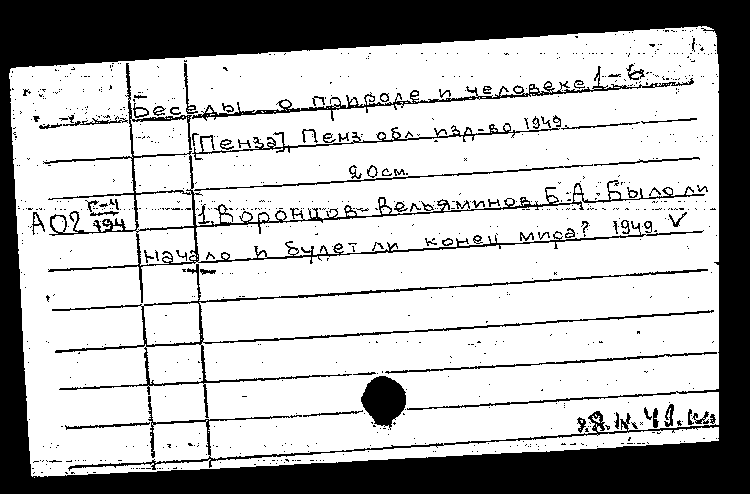 Беседы о природе и человеке 1-6
[Пенза], Пенз. обл. изд-во, 1949.
20см.
А02 Г-4/194
1. Воронцов-Вельяминов, Б.А. Было ли
начало и будет ли конец мира? 1949. V